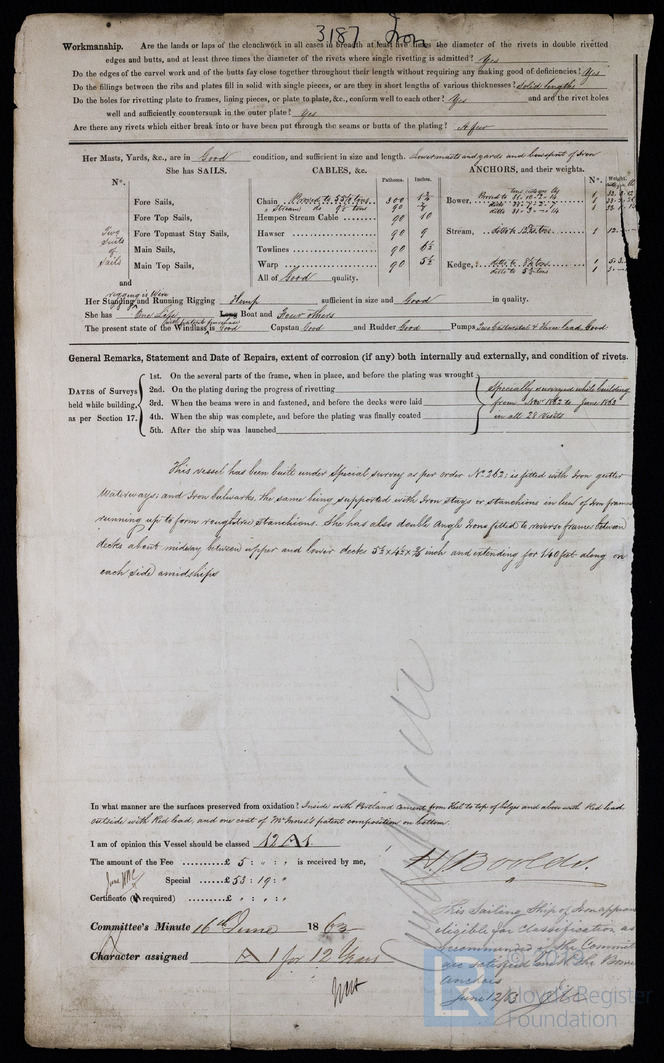 3187 Iron
Workmanship. Are the lands or laps of the clenchwork in all cases in breadth at least five times the diameter of the rivets in double rivetted
edges and butts, and at least three times the diameter of the rivets where single rivetting is admitted? Yes
Do the edges of the carvel work and of the butts fay close together throughout their length without requiring any making good of deficiencies? Yes
Do the fillings between the ribs and plates fill in solid with single pieces, or are they in short lengths of various thicknesses? Solid lengths
Do the holes for rivetting plate to frames, lining pieces, or plate to plate, &c., conform well to each other? Yes and are the rivet holes
well and sufficiently countersunk in the outer plate? Yes
Are there any rivets which either break into or have been put through the seams or butts of the plating? A few
Her Masts, Yards, &c., are in Good condition, and sufficient in size and length. Lower masts and yards and bowsprit of Iron
She has SAILS. CABLES, &c. ANCHORS, and their weights.
Nº. Fathoms. Inches. Nº. Weight.
Fore Sails, Chain Proved to 55 1/8 tons 300 Bower,
Fore Top Sails, Hempen Stream Cable 90 10
Two Suits of Sails
Fore Topmast Stay Sails, Hawser 90 9 Stream,
Main Sails, Towlines 90 6½
Main Top Sails, Warp 90 5½ Kedge,
and All of Good quality.
Her Standing and Running Rigging rigging is Wire Hemp sufficient in size and Good in quality.
She has One Life Long Boat and Four others
The present state of the Windlass with patent purchase is Good Capstan Good and Rudder Good Pumps
General Remarks, Statement and Date of Repairs, extent of corrosion (if any) both internally and externally, and condition of rivets.
DATES of Surveys held while building, as per Section 17.
1st. On the several parts of the frame, when in place, and before the plating was wrought
2nd. On the plating during the progress of rivetting
3rd. When the beams were in and fastened, and before the decks were laid
4th. When the ship was complete, and before the plating was finally coated
5th. After the ship was launched
Specially surveyed while building
from Novr 1862 to June 1863
in all 28 Visits
This vessel has been built under Special survey as per order No 262; is fitted with Iron gutter
Waterways; and Iron bulwarks, the same being supported with Iron stays or stanchions in lieu of Iron frames
running up to form roughtree stanchions. She has also double Angle Irons fitted to reverse frames between
decks about midway between upper and lower decks 5½ x 4½ x inch and extending for 140 feet along on
each side amidships
In what manner are the surfaces preserved from oxidation? Inside with Portland cement from Keel to top of bilges and above with Red lead
outside with Red lead, and one coat of McInnes's patent composition on bottom.
I am of opinion this Vessel should be classed 12 A 1.
The amount of the Fee £ 5 : " : " is received by me,
Special £ 53 : 19 : "
Certificate (if required) £ " : " : "
Committee's Minute 16th June 1863
Character assigned A 1 for 12 Years
This Sailing Ship of Iron appears
eligible for classification as
recommended if the Committee
are satisfied with the Bower
anchors
June 12/63
© 2019
LR
Lloyd's Register
Foundation